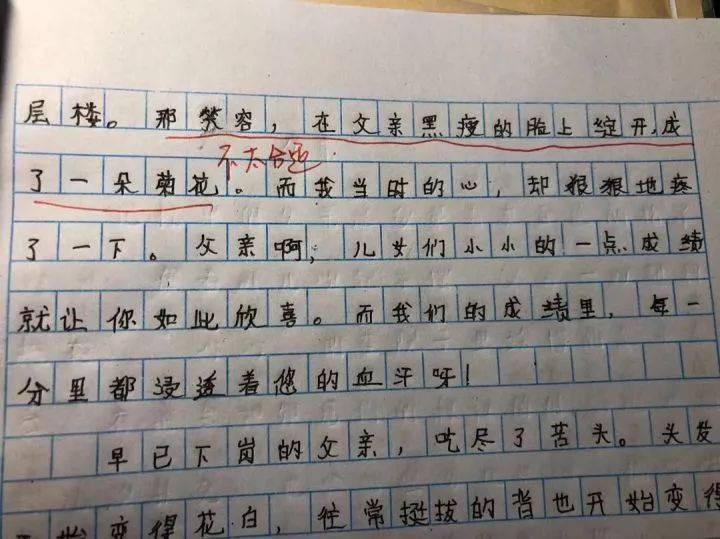 层楼。那笑容，在父亲黑瘦的脸上绽开，成
不太合适
了一朵菊花。而我当时的心，却狠狠地疼
了一下。父亲啊，儿女们小小的一点成绩
就让你如此欣喜。而我们的成绩里，每一
分里都浸透着您的血汗呀！
早已下岗的父亲，吃尽了苦头。头发
变得花白，往常挺拔的背也开始变得